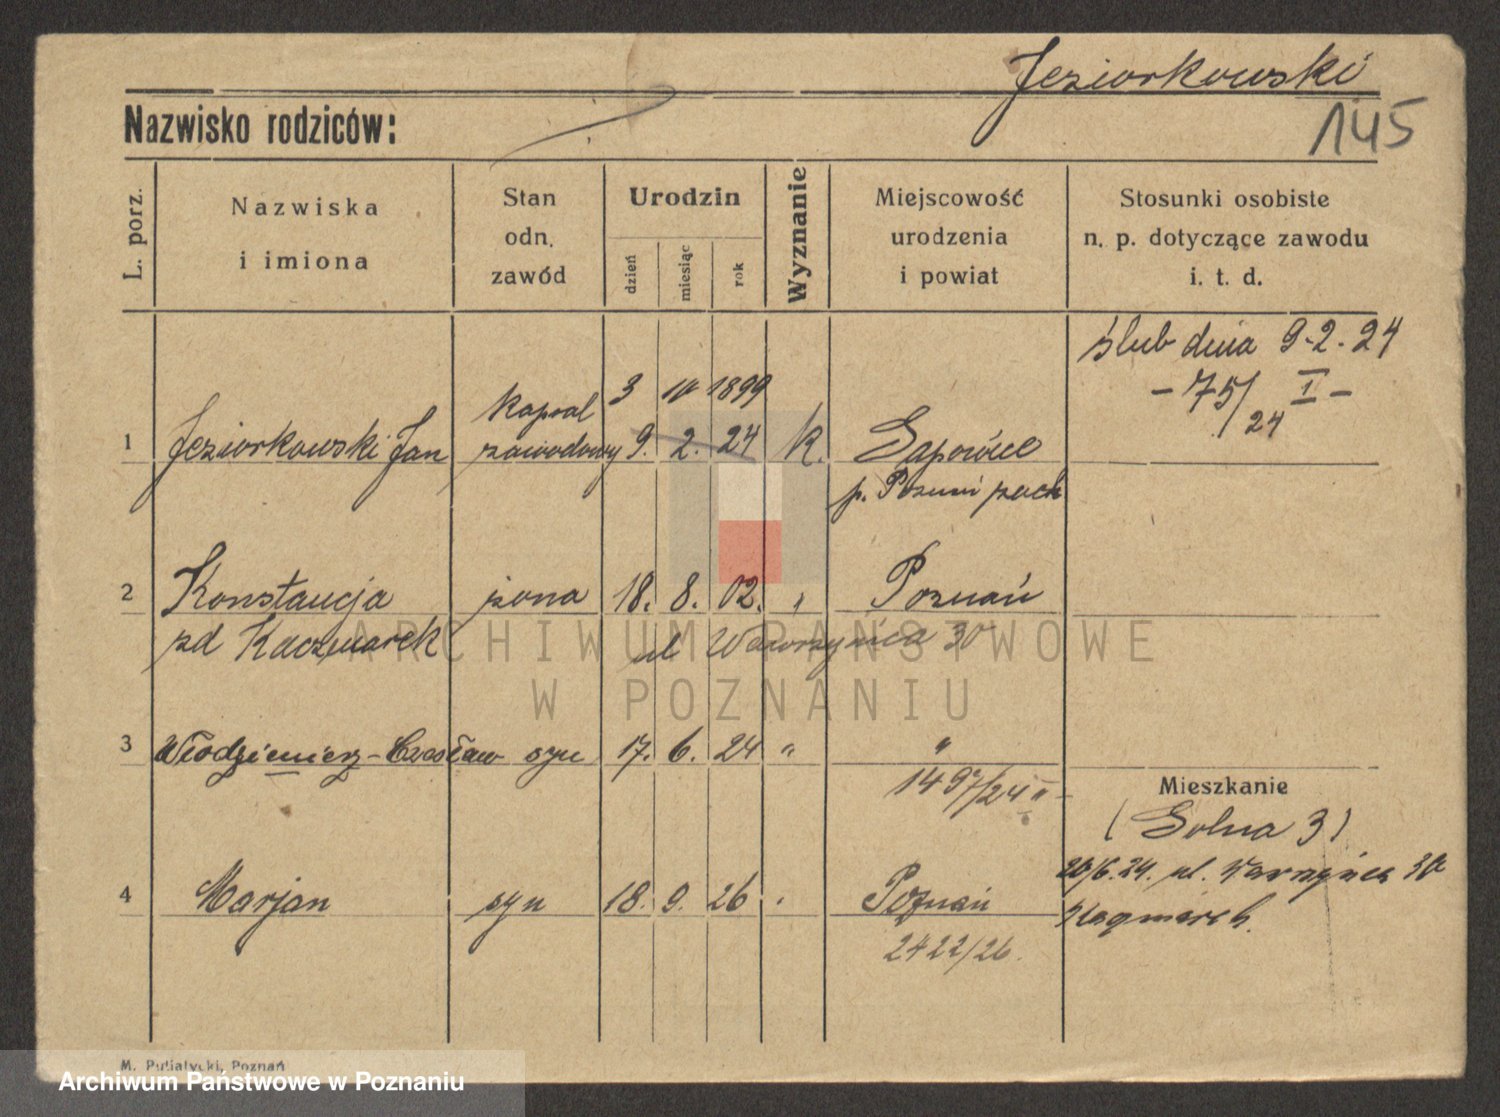 Jeziorkowski
145
Nazwisko rodziców:
L. porz.
Nazwiska
i imiona
Stan
odn.
zawód
Urodzin
dzień
miesiąc
rok
Wyznanie
Miejscowość
urodzenia
i powiat
Stosunki osobiste
n. p. dotyczące zawodu
i. t. d.
ślub dnia 9.2.24
- 75/24 I -
1 Jeziorkowski Jan kapral zawodowy
3 IV 1899
9. 2. 24 k. Sapowice
p. Poznań zach
2 Konstancja żona 18. 8. 02. „ Poznań
zd Kaczmarek ul Wawrzyńca 30
3 Włodzimierz-Czesław syn 17. 6. 24 „ „
1497/24 II
Mieszkanie
(Solna 3)
20/6.24. ul. Wawrzyńca 30
Kaczmarek.
4 Marjan syn 18. 9. 26 Poznań
2422/26.
M. Putiatycki, Poznań
ARCHIWUM PAŃSTWOWE
W POZNANIU
Archiwum Państwowe w Poznaniu